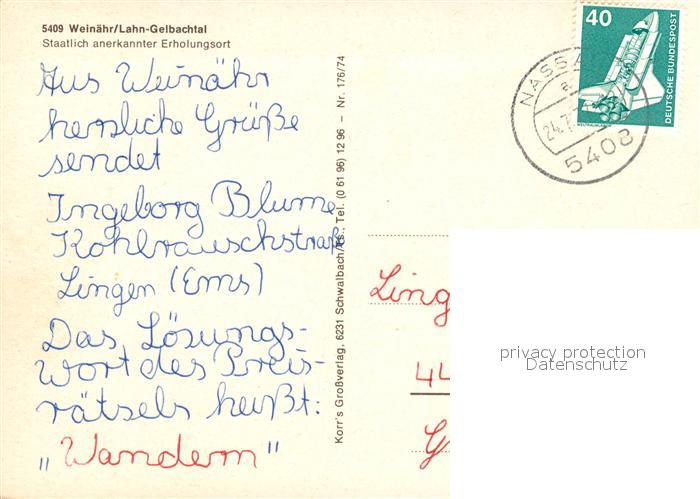 5409 Weinähr/Lahn-Gelbachtal
Staatlich anerkannter Erholungsort
Aus Weinähr
herzliche Grüße
sendet
Ingeborg Blume
Kohlrauschstraße
Lingen (Ems)
Das Lösungs-
wort des Preis-
rätsels heißt:
„Wandern"
Korr's Großverlag, 6231 Schwalbach/Ts., Tel. (0 61 96) 12 96 – Nr. 176/74
40
DEUTSCHE BUNDESPOST
NASSA
a
24.7
5408
Ling
44
privacy protection
Datenschutz